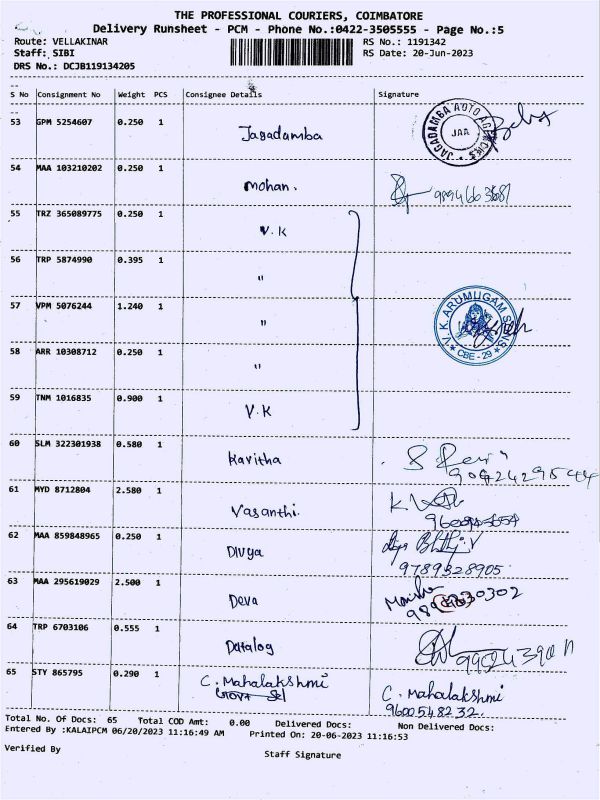 THE PROFESSIONAL COURIERS, COIMBATORE
Delivery Runsheet - PCM - Phone No.:0422-3505555 - Page No.:5
Route: VELLAKINAR RS No.: 1191342
Staff: SIBI RS Date: 20-Jun-2023
DRS No.: DCJB119134205
S No Consignment No Weight PCS Consignee Details Signature
53 GPM 5254607 0.250 1 Jagadamba JAGADAMBA AUTO AGENCIES JAA
54 MAA 103210202 0.250 1 Mohan.
55 TRZ 365089775 0.250 1 V.K
56 TRP 5874990 0.395 1 "
57 VPM 5076244 1.240 1 " V.K.ARUMUGAM SONS CBE - 29
58 ARR 10308712 0.250 1 "
59 TNM 1016835 0.900 1 V.K
60 SLM 322301938 0.580 1 Kavitha
61 MYD 8712804 2.580 1 Vasanthi.
62 MAA 859848965 0.250 1 Divya 9789328905
63 MAA 295619029 2.500 1 Deva
64 TRP 6703106 0.555 1 Datalog
65 STY 865795 0.290 1 C. Mahalakshmi C. Mahalakshmi
9600548232.
Total No. Of Docs: 65 Total COD Amt: 0.00 Delivered Docs: Non Delivered Docs:
Entered By :KALAIPCM 06/20/2023 11:16:49 AM Printed On: 20-06-2023 11:16:53
Verified By Staff Signature